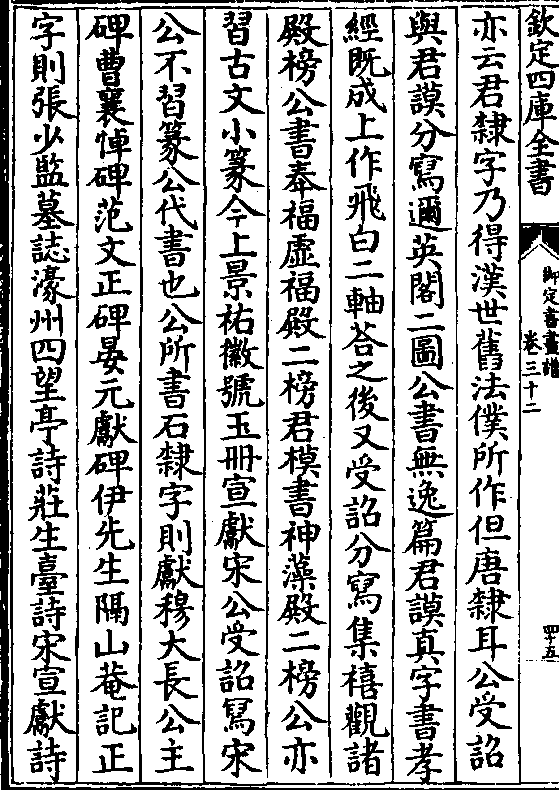 欽定四庫全書
御定書畫譜
卷三十二
四十五
亦云君隸字乃得漢世舊法僕所作但唐隸耳公受詔
與君謨分寫邇英閣二圖公書無逸篇君謨真字書孝
經既成上作飛白二軸荅之後又受詔分寫集禧觀諸
殿榜公書奉福虛福殿二榜君模書神藻殿二榜公亦
習古文小篆今上景祐徽號玉冊宣獻宋公受詔寫宋
公不習篆公代書也公所書石隸字則獻穆大長公主
碑曹襄悼碑范文正碑晏元獻碑伊先生隔山菴記正
字則張少監墓誌濠州四望亭詩莊生臺詩宋宣獻詩